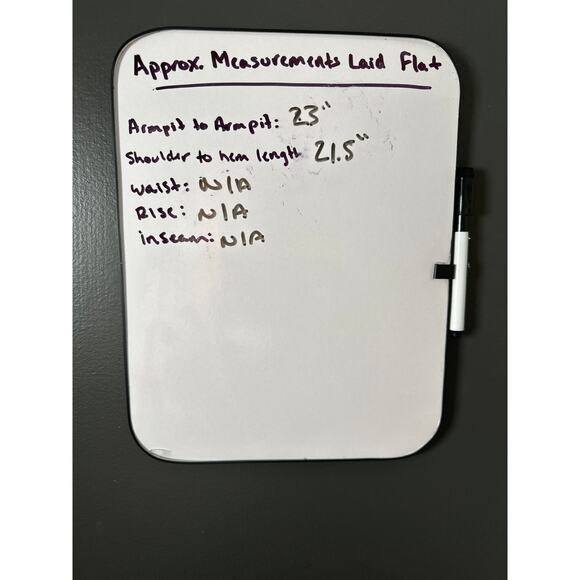 Approx. Measurements Laid Flat
Armpit to Armpit: 23"
Shoulder to hem length 21.5"
waist: N/A
Rise: N/A
inseam: N/A